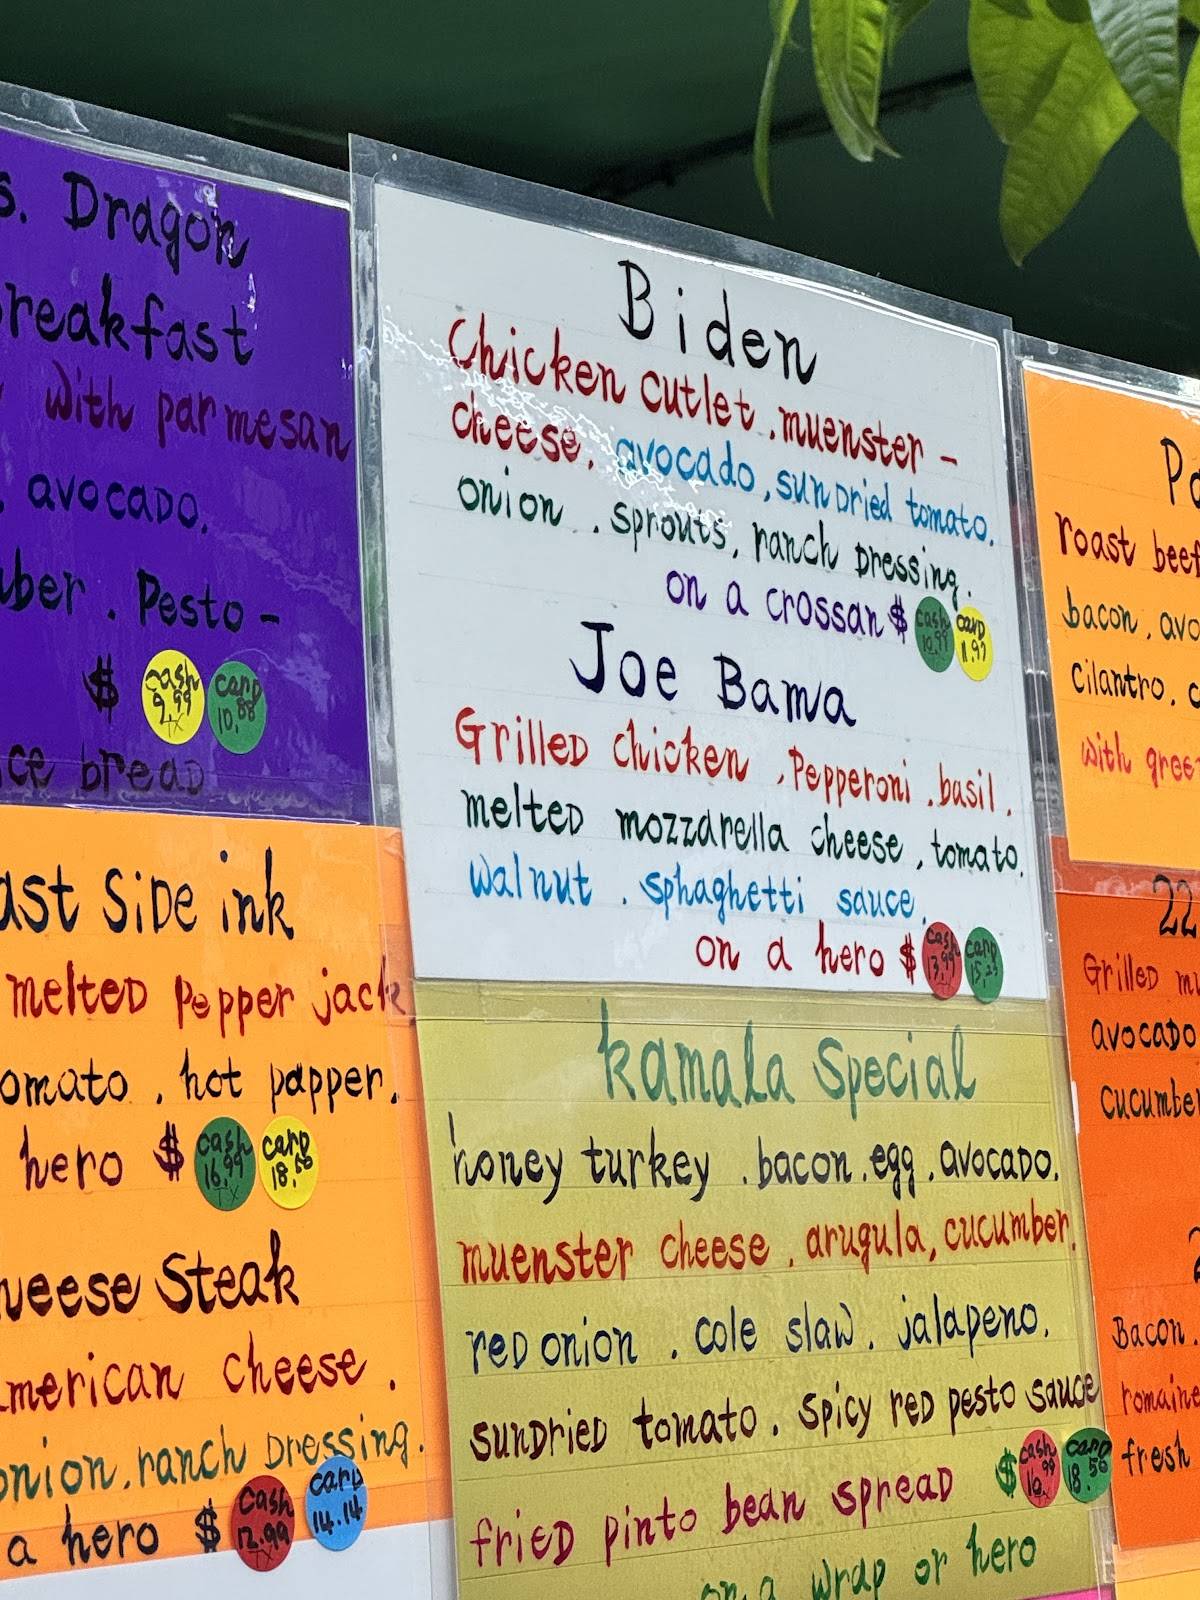 s. Dragon
reakfast
with parmesan
. avocado.
ber. Pesto -
$ cash 9.99 TX card 10.88
ce bread
ast Side ink
melted Pepper jack
omato . hot papper.
hero $ cash 16.99 TX card 18.50
heese Steak
merican cheese .
onion . ranch Dressing.
a hero $ cash 12.99 TX card 14.14
Biden
Chicken cutlet . muenster -
cheese. avocado, sun Dried tomato.
onion . sprouts, ranch Dressing.
on a crossan $ cash 10.99 card 11.97
Joe Bama
Grilled chicken , Pepperoni . basil .
melted mozzarella cheese , tomato.
walnut . sphaghetti sauce.
on a hero $ cash 13.99 TX card 15.23
kamala special
honey turkey . bacon . egg . avocado.
muenster cheese , arugula, cucumber.
red onion . cole slaw . jalapeno.
sundried tomato . spicy red pesto sauce
fried pinto bean spread $ cash card 18.50
on a wrap or hero
roast beef
bacon . avo
cilantro.
with gree
22
Grilled mu
avocado
cucumber
Bacon.
romaine
fresh